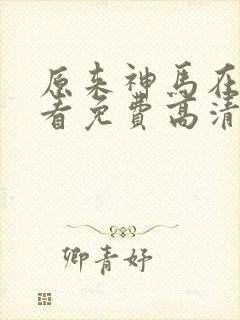 原来神马在
看免费高清
卿青妤